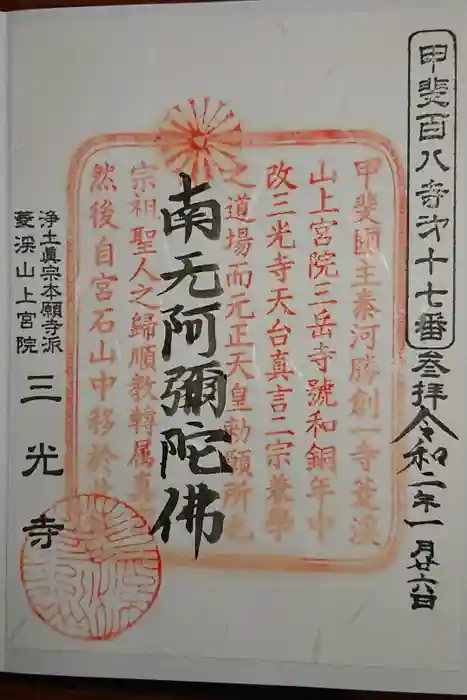 甲斐百八寺㐧十七番
叅拝令和二年一月廿六日
甲斐國主秦河勝創一寺菱溪
山上宮院三岳寺號和銅年中
改三光寺天台真言二宗兼學
之道場而元正天皇勅願所也
宗祖聖人之歸順教轉属真
然後自宮石山中移於
南无阿彌陀佛
浄土眞宗本願寺派
菱渓山上宮院
三光寺